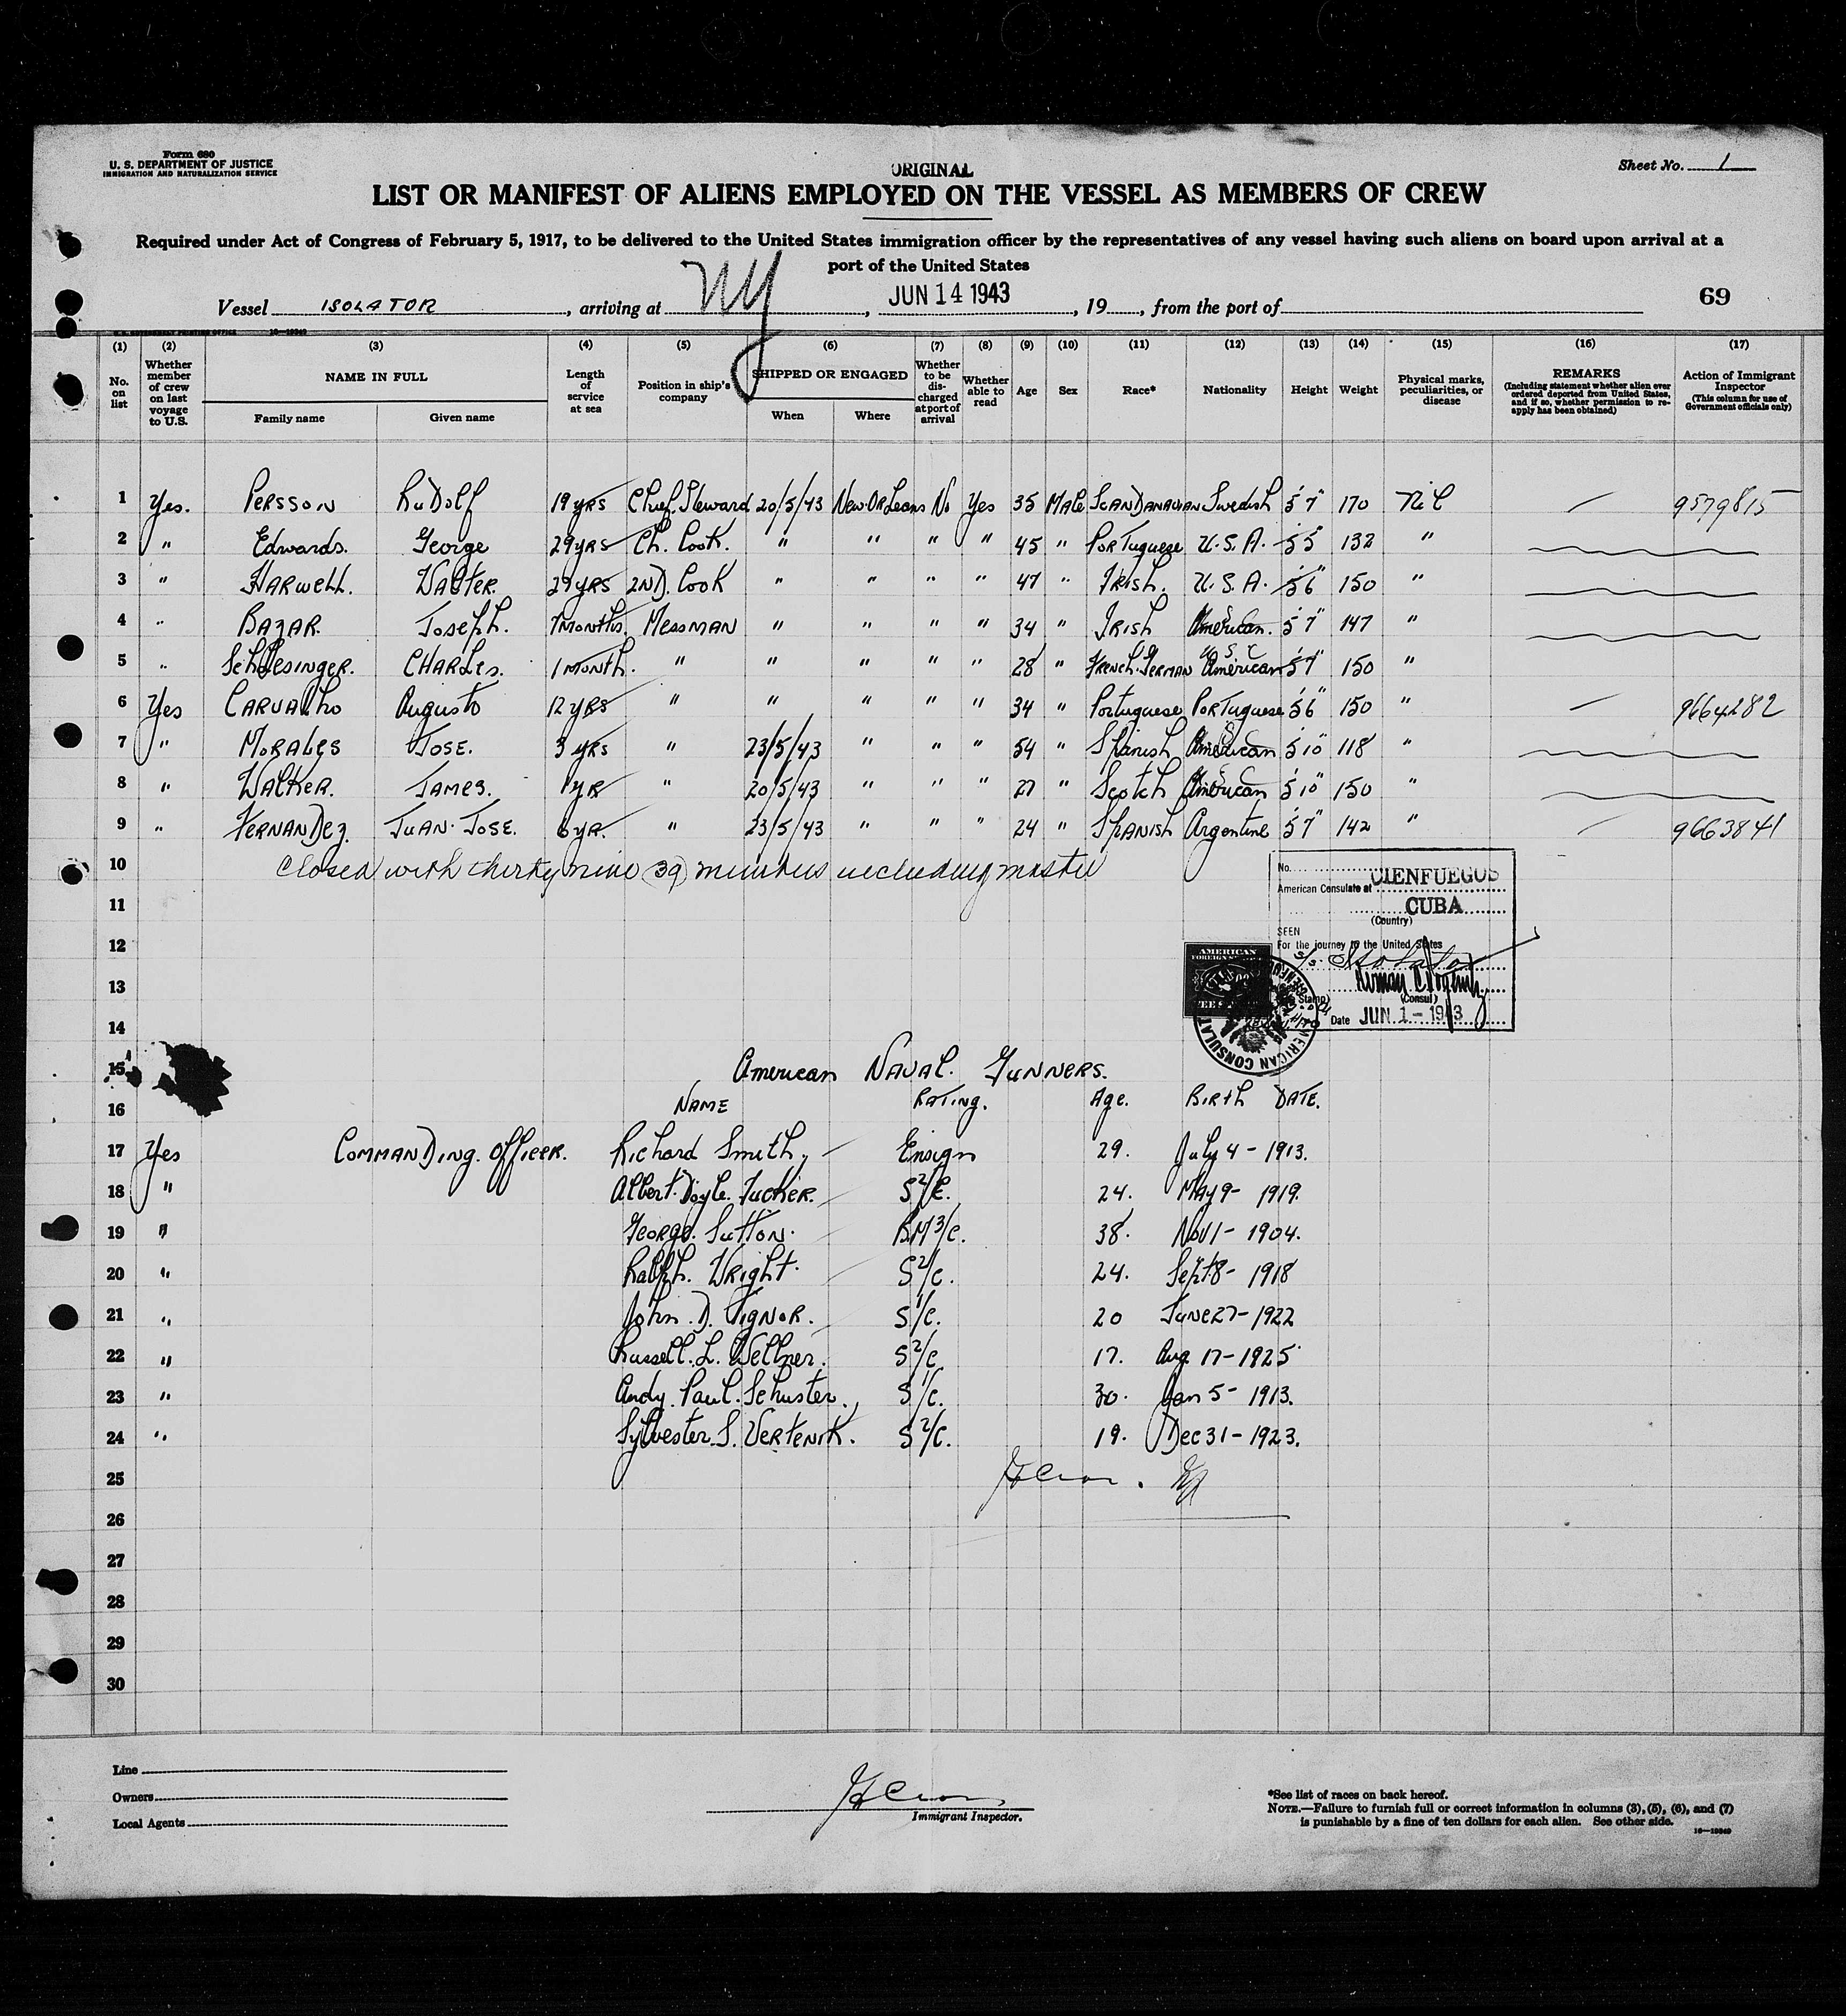 Form 680
U. S. DEPARTMENT OF JUSTICE
IMMIGRATION AND NATURALIZATION SERVICE
ORIGINAL
Sheet No. 1
LIST OR MANIFEST OF ALIENS EMPLOYED ON THE VESSEL AS MEMBERS OF CREW
Required under Act of Congress of February 5, 1917, to be delivered to the United States immigration officer by the representatives of any vessel having such aliens on board upon arrival at a
port of the United States
Vessel ISOLATOR, arriving at NY, JUN 14 1943, 19, from the port of
69
(1) (2) (3) (4) (5) (6) (7) (8) (9) (10) (11) (12) (13) (14) (15) (16) (17)
No. on list
Whether member of crew on last voyage to U.S.
NAME IN FULL
Family name Given name
Length of service at sea
Position in ship's company
SHIPPED OR ENGAGED
When Where
Whether to be discharged at port of arrival
Whether able to read
Age
Sex
Race*
Nationality
Height
Weight
Physical marks, peculiarities, or disease
REMARKS
(Including statement whether alien ever ordered deported from United States, and if so, whether permission to reapply has been obtained)
Action of Immigrant Inspector
(This column for use of Government officials only)
1 Yes. Persson Rudolf 19 yrs Chief Steward 20/5/43 New Orleans No Yes 35 Male Scandanavian Swedish 5'7" 170 Nil 9579815
2 " Edwards. George 29 yrs Ch. Cook. " " " " 45 " Portuguese U.S.A. 5'5 132 "
3 " Harwell. Walter. 29 yrs 2nd. Cook " " " " 47 " Irish. U.S.A. 5'6" 150 "
4 " Bazar. Joseph. 7 months. Messman " " " " 34 " Irish American. 5'7" 147 "
5 " Schlesinger. Charles. 1 month. " " " " " 28 " French-German American USC 5'7" 150 "
6 Yes Carvalho Augusto 12 yrs " " " " " 34 " Portuguese Portuguese 5'6" 150 " 9664282
7 " Morales Jose. 3 yrs " 23/5/43 " " " 54 " Spanish American 5'10" 118 "
8 " Walker. James. 1 yr " 20/5/43 " " " 27 " Scotch American 5'10" 150 "
9 " Fernandez. Juan. Jose. 6 yr. " 23/5/43 " " " 24 " Spanish Argentine 5'7" 142 " 9663841
10 Closed with thirty nine (39) members including master
11
12
13
14
No.
American Consulate at CIENFUEGOS
CUBA
(Country)
SEEN
For the journey to the United States
S/S Isolator
(Consul)
Date JUN 1 - 1943
AMERICAN
AMERICAN CONSULAT
15 American Naval. Gunners.
16 Name Rating. Age. Birth Date.
17 Yes Commanding. Officer. Richard Smith, Ensign 29. July 4 - 1913.
18 " Albert. Doyle. Tucker. S2/C. 24. May 9 - 1919.
19 " George. Sutton. BM3/C. 38. Nov 1 - 1904.
20 " Ralph. Wright. S2/C. 24. Sept 8 - 1918
21 " John. D. Tignor. S1/C. 20 June 27 - 1922
22 " Russell. L. Wellner. S2/C 17. Aug. 17 - 1925
23 " Andy. Paul. Schuster. S1/C. 30. Jan 5 - 1913.
24 " Sylvester. S. Vertenik. S2/C. 19. Dec 31 - 1923.
25
26
27
28
29
30
Line
Owners
Local Agents
Immigrant Inspector.
*See list of races on back hereof.
NOTE.—Failure to furnish full or correct information in columns (3), (5), (6), and (7)
is punishable by a fine of ten dollars for each alien. See other side.